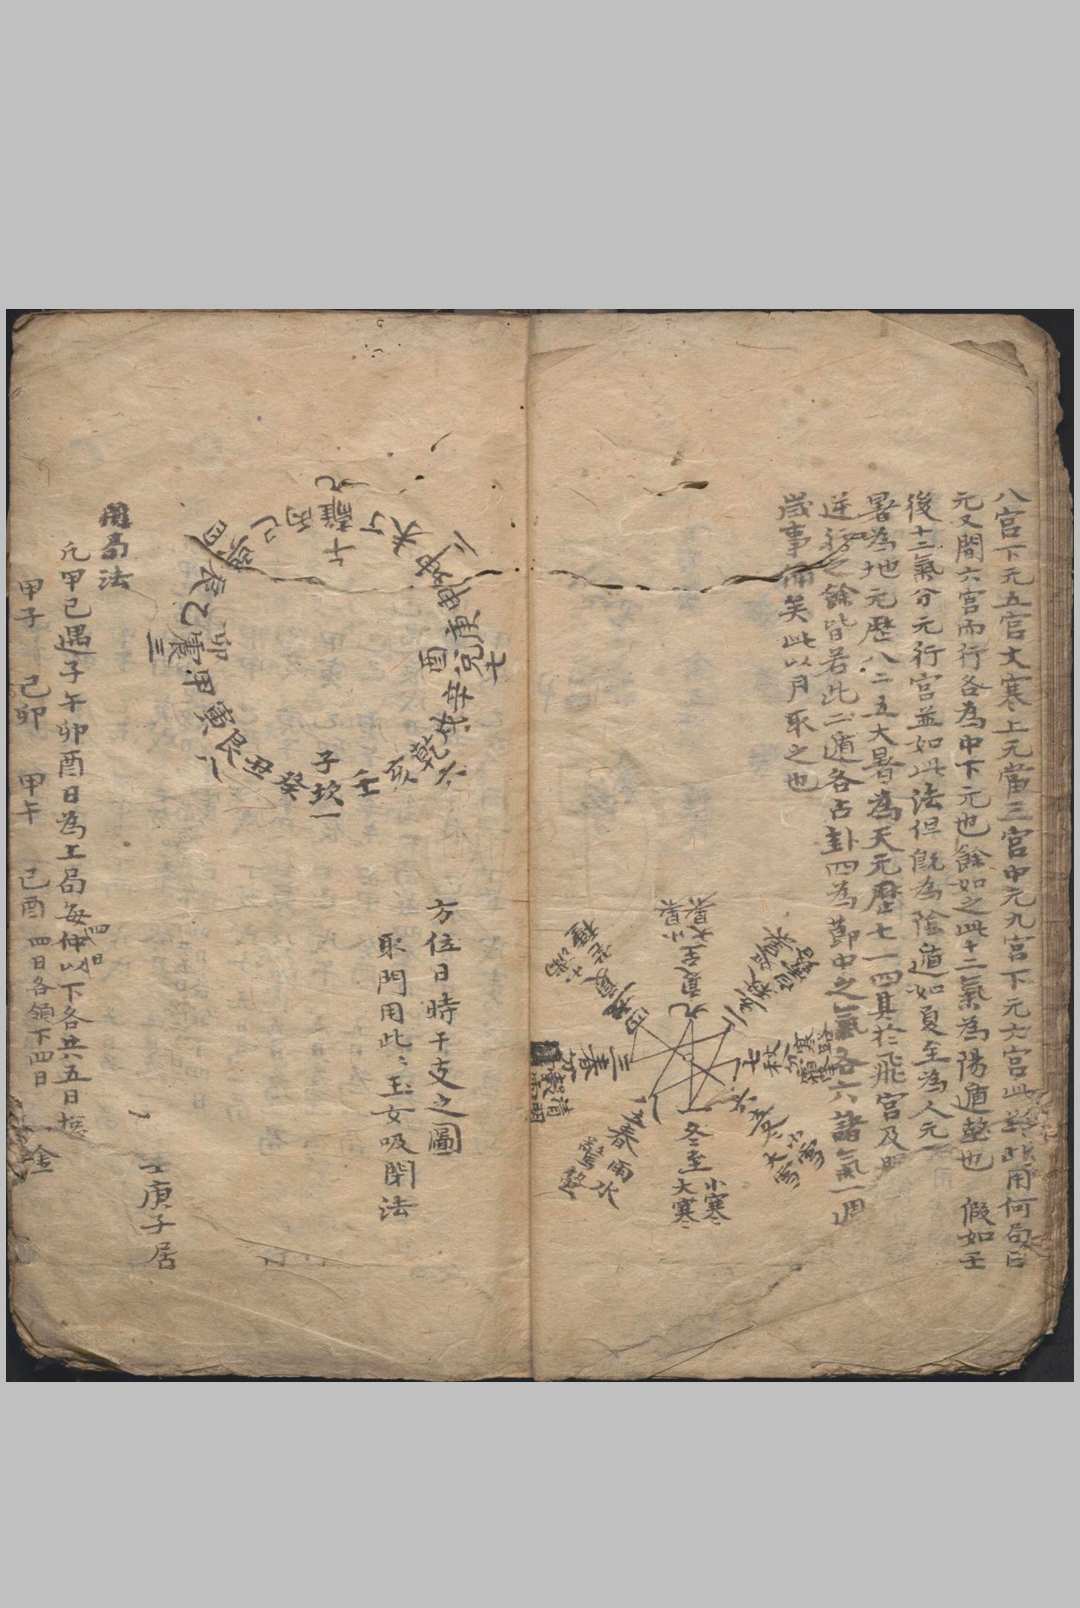 八宮下元五宮大寒上元當三宮中元九宮下元六宮此用何局日
元又間六宮而行各為中下元也餘如之此十二氣為陽遁墪也 假如壬
後十二氣分元行宮並如此法但旣為陰遁如夏至為人元
暑為地元歷八二五大暑為天元歷七一四其於飛宮及
逆行之餘皆若此二遁各占卦四為節中之氣各六諸氣一周
歲事備矣此以月取之也
夏至
小暑
大暑
九
二
立秋
處暑
白露
七
秋分
寒露
霜降
六
立冬
小雪
大雪
一
冬至
小寒
大寒
八
立春
雨水
驚蟄
三
春分
清明
穀雨
四
立夏
小滿
芒種
方位日時干支之圖
取門用此玉女吸閉法
九
離
午
丁
未
坤
二
申
庚
兌
七
酉
辛
戌
乾
六
亥
壬
子
坎
一
癸
丑
艮
八
寅
甲
震
三
卯
乙
辰
巽
四
巳
丙
庚子居
用局法
凡甲己遇子午卯酉日為上局每仲以下各五日
四日
甲子 己卯 甲午 己酉 四日各領下四日